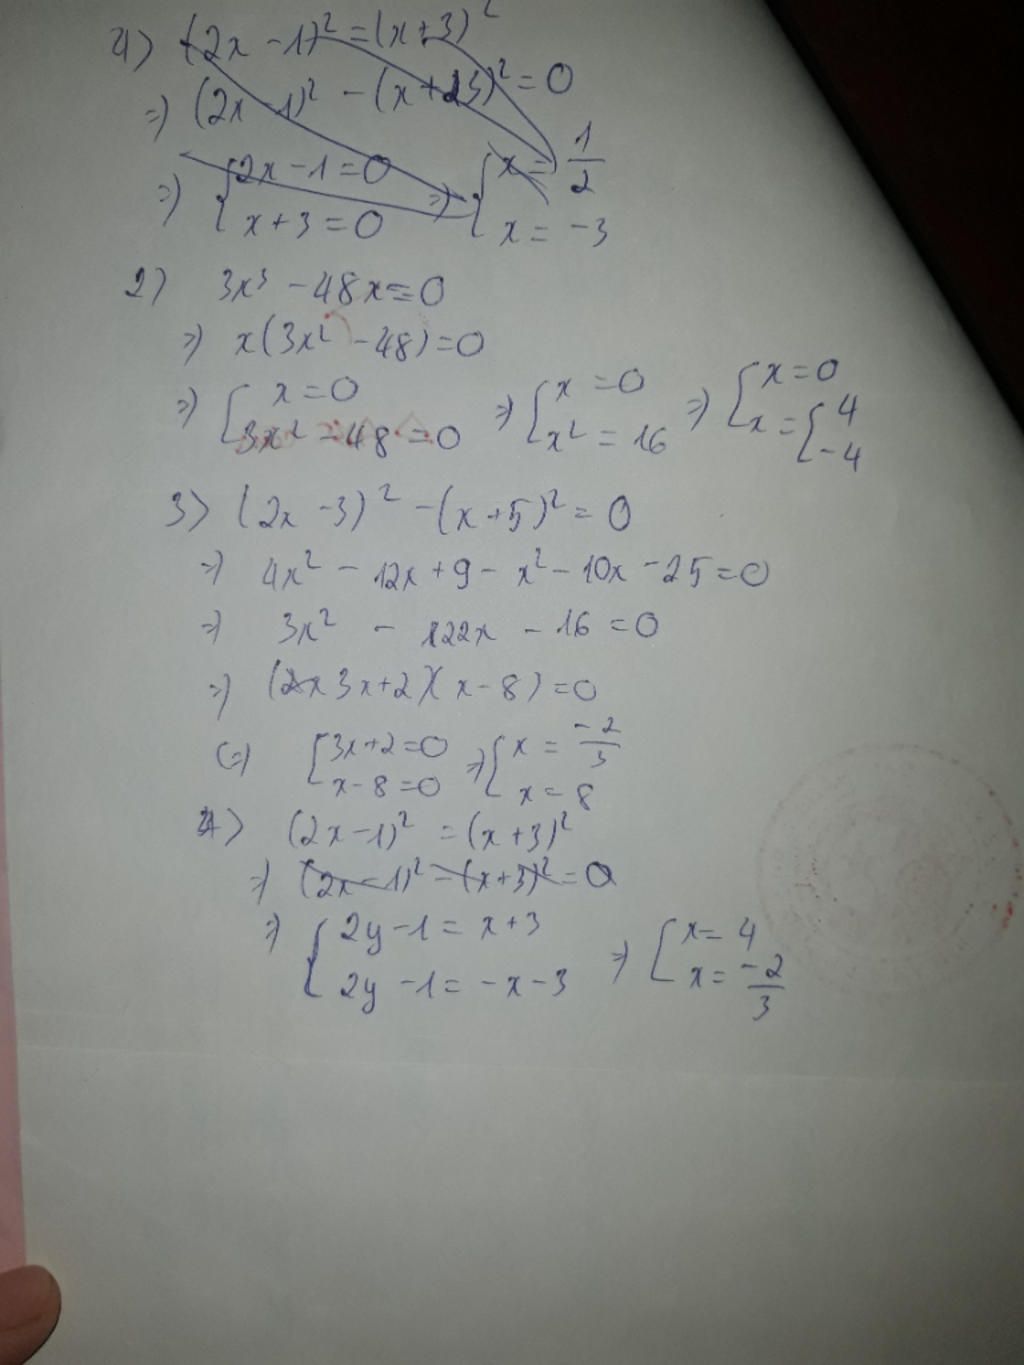 1) (2x - 1)² = (x + 3)²
=> (2x - 1)² - (x + 3)² = 0
=> { 2x - 1 = 0 => { x = 1/2
x + 3 = 0 x = -3
2) 3x³ - 48x = 0
=> x(3x² - 48) = 0
=> [ x = 0 => [ x = 0 => [ x = 0
3x² - 48 = 0 x² = 16 x = [ 4
-4
3) (2x - 3)² - (x + 5)² = 0
=> 4x² - 12x + 9 - x² - 10x - 25 = 0
=> 3x² - 22x - 16 = 0
=> (3x + 2)(x - 8) = 0
(=) [ 3x + 2 = 0 => [ x = -2/3
x - 8 = 0 x = 8
4) (2x - 1)² = (x + 3)²
=> (2x - 1)² - (x + 3)² = 0
=> { 2y - 1 = x + 3 => [ x = 4
2y - 1 = -x - 3 x = -2/3